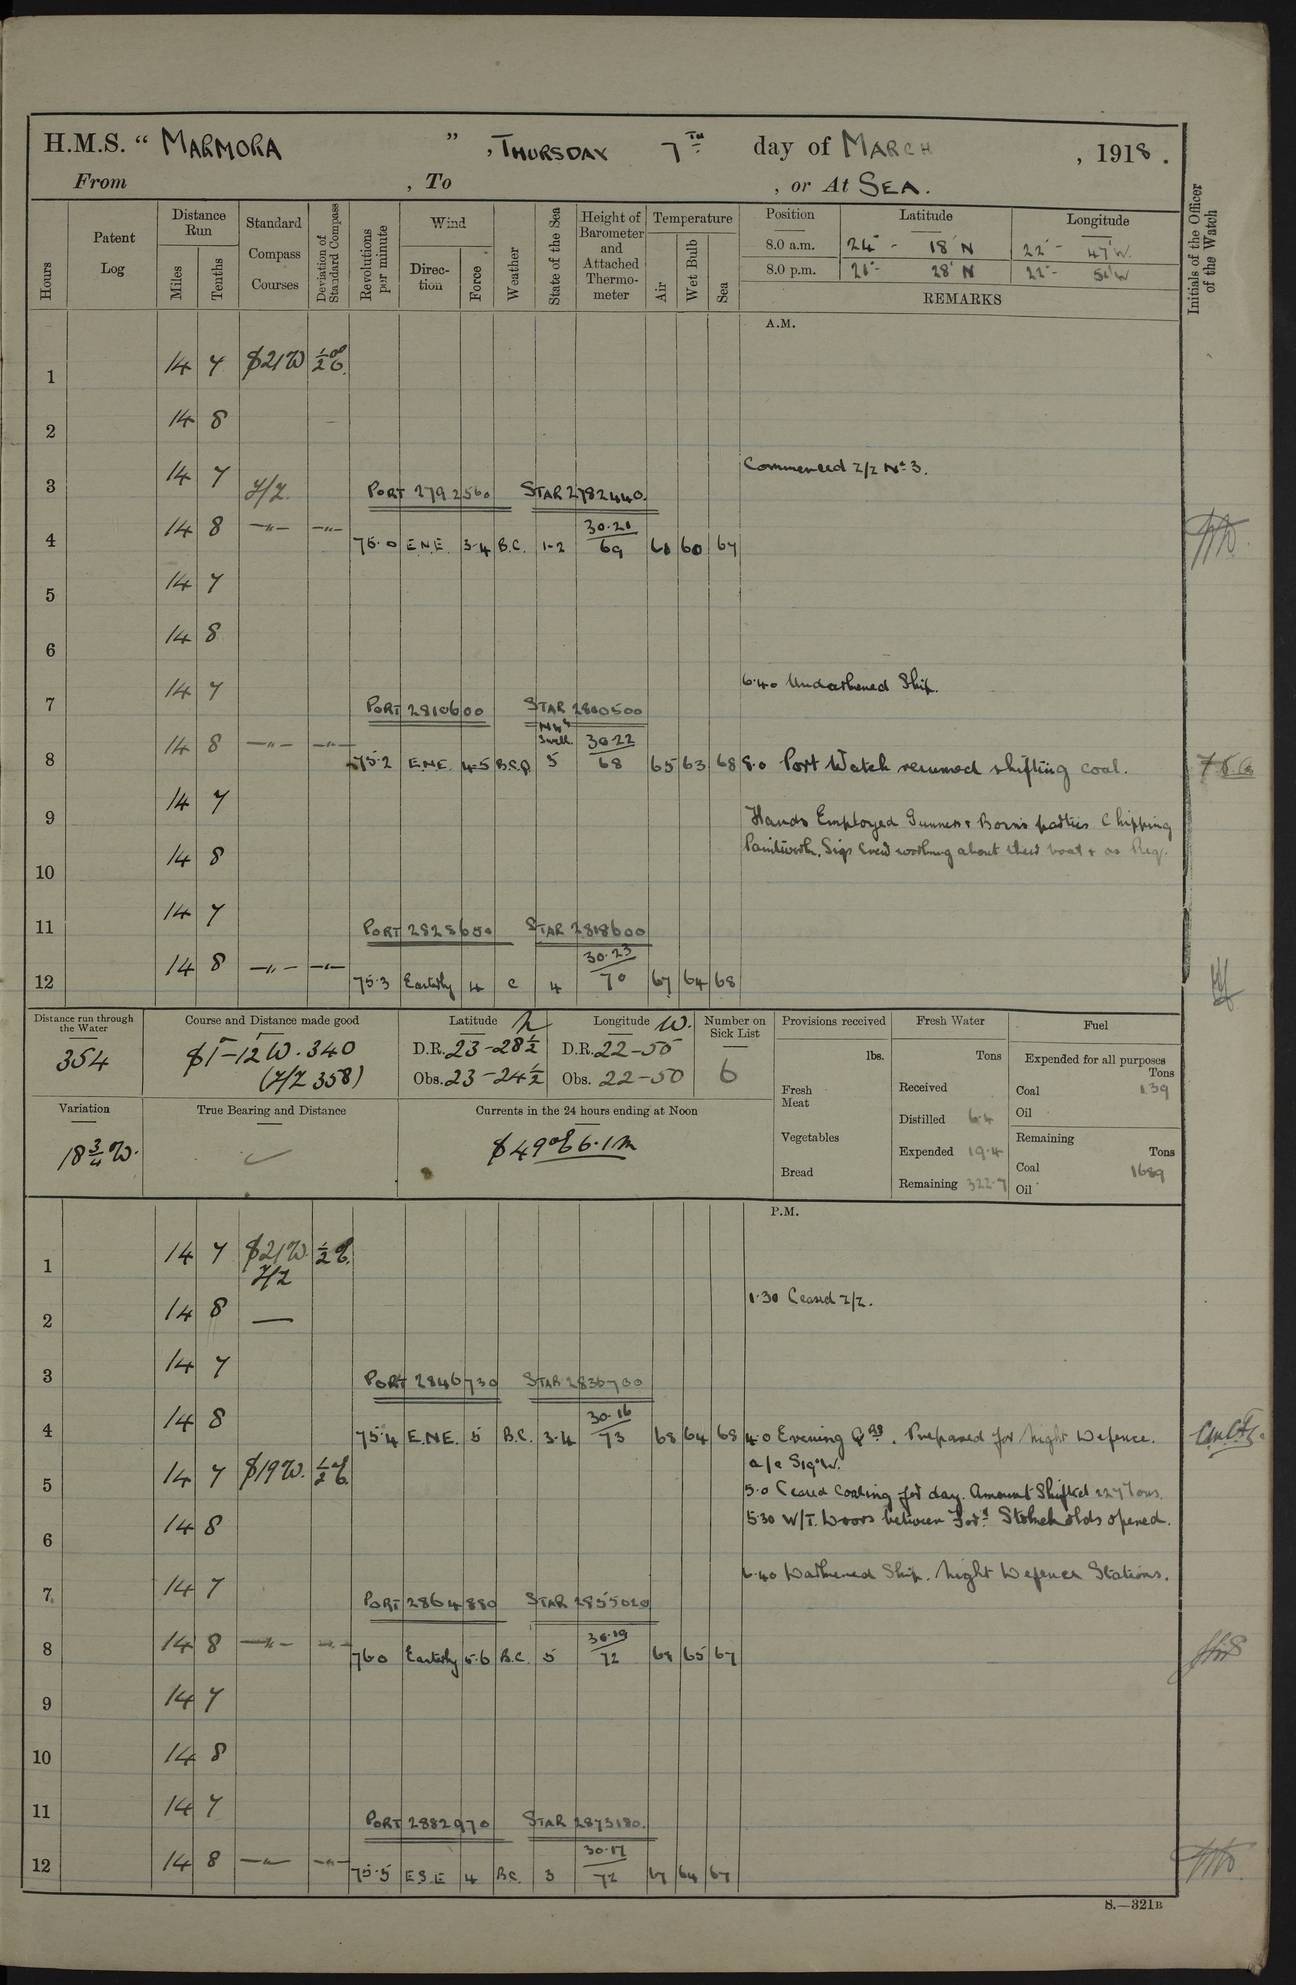 H.M.S. “ MARMORA ” , THURSDAY 7TH day of MARCH , 1918 .
From , To , or At SEA.
Hours
Patent Log
Distance Run
Miles
Tenths
Standard Compass Courses
Deviation of Standard Compass
Revolutions per minute
Wind
Direc-tion
Force
Weather
State of the Sea
Height of Barometer and Attached Thermo-meter
Temperature
Air
Wet Bulb
Sea
Position Latitude Longitude
8.0 a.m. 24° - 18' N 22° - 47' W.
8.0 p.m. 21° - 28' N 22° - 51' W
REMARKS
Initials of the Officer of the Watch
A.M.
1 14 7 S21W ½°E.
2 14 8
Commenced Z/Z No 3.
3 14 7 Z/Z. PORT 2792560 STAR 2782440.
4 14 8 —"— —"— 75.0 E.N.E. 3-4 B.C. 1-2 30.21 69 60 67
5 14 7
6 14 8
6.40 Undarkened Ship.
7 14 7 PORT 2810600 STAR 2800500
8 14 8 —"— —"— 75.2 E.N.E. 4-5 5 Swell. 30.22 68 65 63 68 8.0 Port Watch resumed shifting coal.
9 14 7 Hands Employed Gunners & Bosns parties Chipping
Paintwork. Sigs crew working about their boat & as Req.
10 14 8
11 14 7 PORT 2828650 STAR 2818600
12 14 8 —"— —"— 75.3 Easterly 4 C 4 30.23 70 67 64 68
Distance run through the Water
354
Course and Distance made good
S 1-12 W. 340
(Z/Z 358)
Latitude N
D.R. 23-28½
Obs. 23-24½
Longitude W.
D.R. 22-55
Obs. 22-50
Number on Sick List
6
Provisions received
lbs.
Fresh Meat
Vegetables
Bread
Fresh Water
Tons
Received
Distilled 64
Expended 19.4
Remaining 322.7
Fuel
Expended for all purposes
Tons
Coal 139
Oil
Remaining
Tons
Coal 1689
Oil
Variation
18¾ W.
True Bearing and Distance
Currents in the 24 hours ending at Noon
S 49°E 6.1m
P.M.
1 14 7 S21W. ½ E.
Z/Z
2 14 8 — 1.30 Ceased Z/Z.
3 14 7 PORT 2846730 STAR 2836700
4 14 8 75.4 E.N.E. 5 B.C. 3-4 30.16 73 68 64 68 4.0 Evening Qrs. Prepared for Night Defence.
a/c S19°W.
5 14 7 S19W. ½°E. 5.0 Ceased Coaling for day. Amount Shifted 227 Tons.
6 14 8 5.30 W/T. Doors between Ford Stokeholds opened.
6.40 Darkened Ship. Night Defence Stations.
7 14 7 PORT 2864880 STAR 2855020
8 14 8 —"— —"— 76.0 Easterly 5-6 B.C. 5 30.19 72 68 65 67
9 14 7
10 14 8
11 14 7 PORT 2882970 STAR 2873180.
12 14 8 —"— —"— 75.5 E.S.E 4 B.C. 3 30.17 72 67 64 67
S.—321B